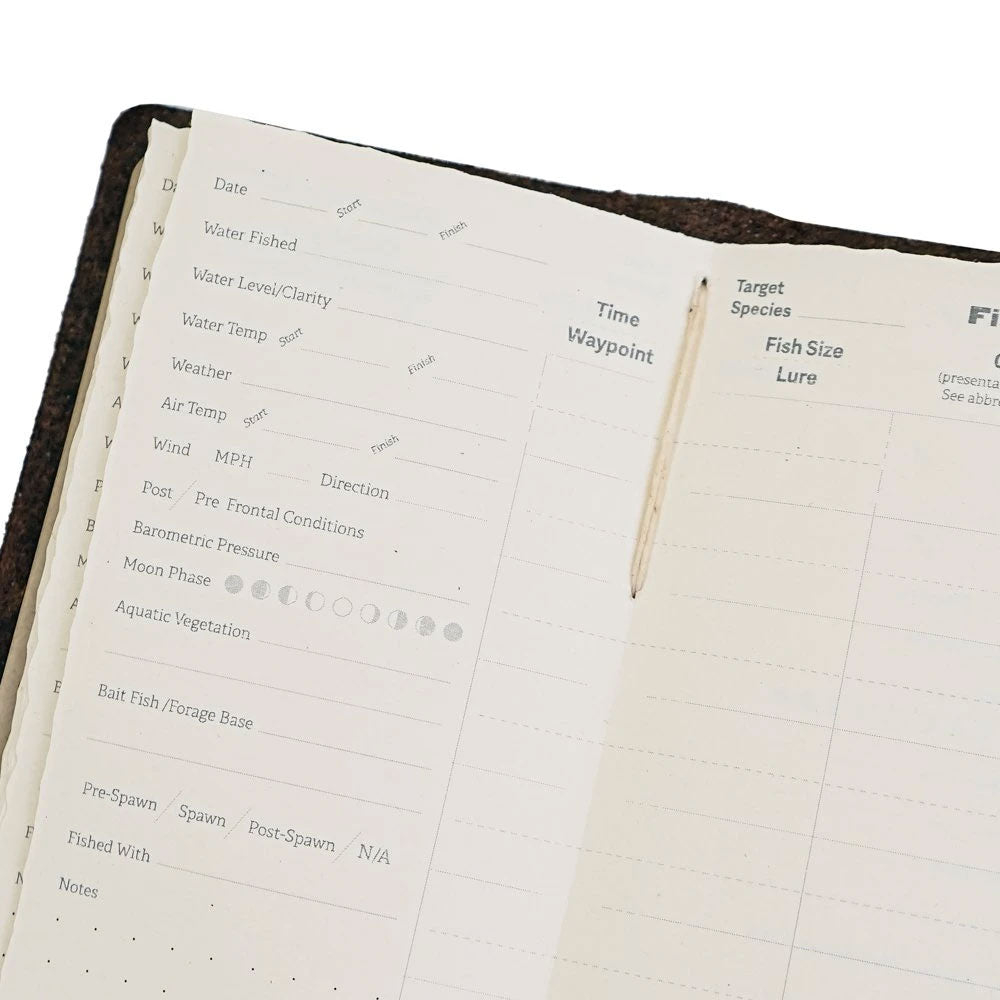 Date Start Finish
Water Fished
Water Level/Clarity
Water Temp Start Finish
Weather
Air Temp Start Finish
Wind MPH Direction
Post / Pre Frontal Conditions
Barometric Pressure
Moon Phase
Aquatic Vegetation
Bait Fish /Forage Base
Pre-Spawn / Spawn / Post-Spawn / N/A
Fished With
Notes
Time
Waypoint
Target
Species
Fish Size
Lure
Fi
(presenta
See abbre